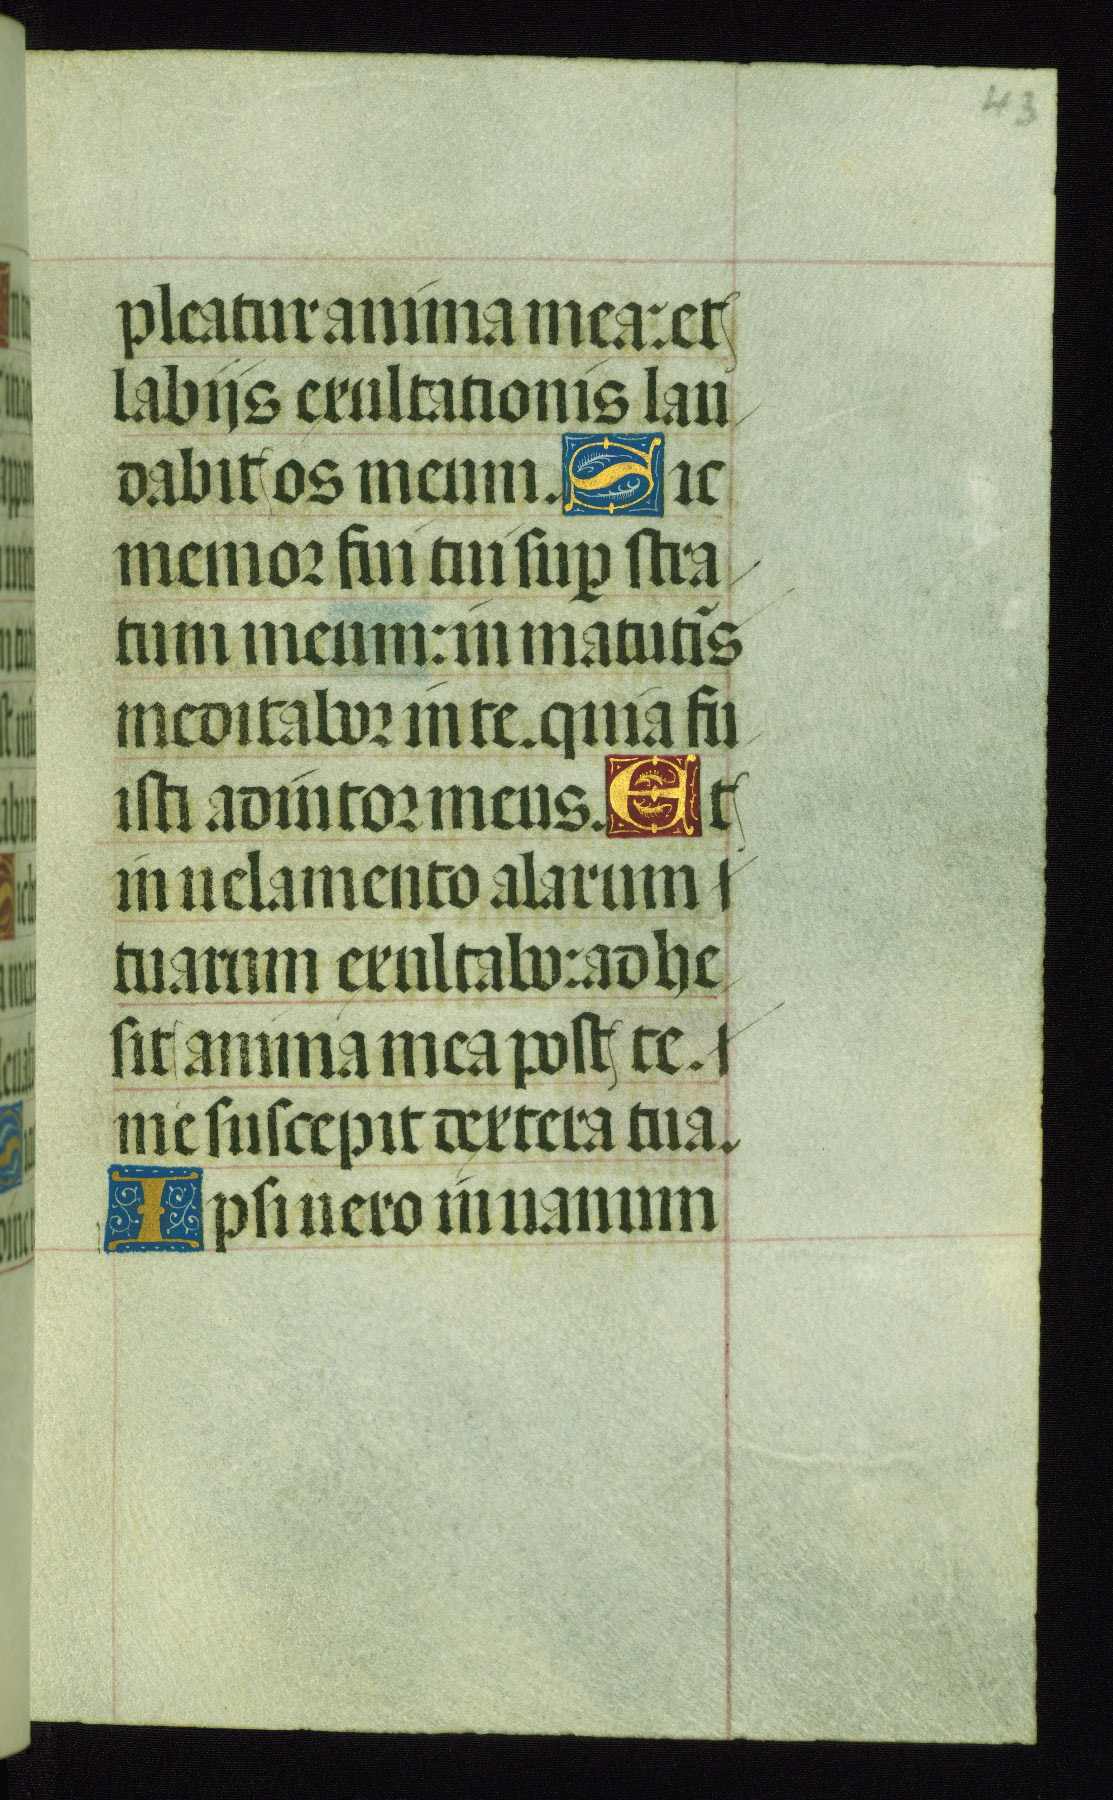 43
pleatur anima mea: et
labijs exultationis lau
dabit os meum. Sic
memor fui tui sup stra
tum meum: in matutĩs
meditabor in te. quia fu
isti adiutor meus. Et
in uelamento alarum
tuarum exultabo: adhe
sit anima mea post te.
me suscepit dextera tua.
Ipsi uero in uanum